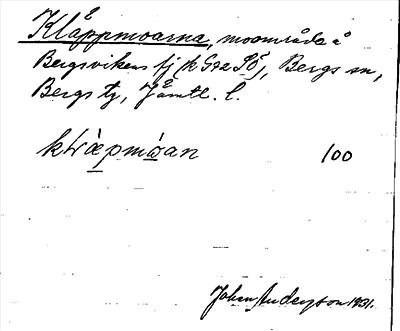 Klåppmoarna, moområde å
Bergsvikens fj (k 592 Sö), Bergs sn,
Bergs tg, Jämtl. l.
100
John Anderson 1931.